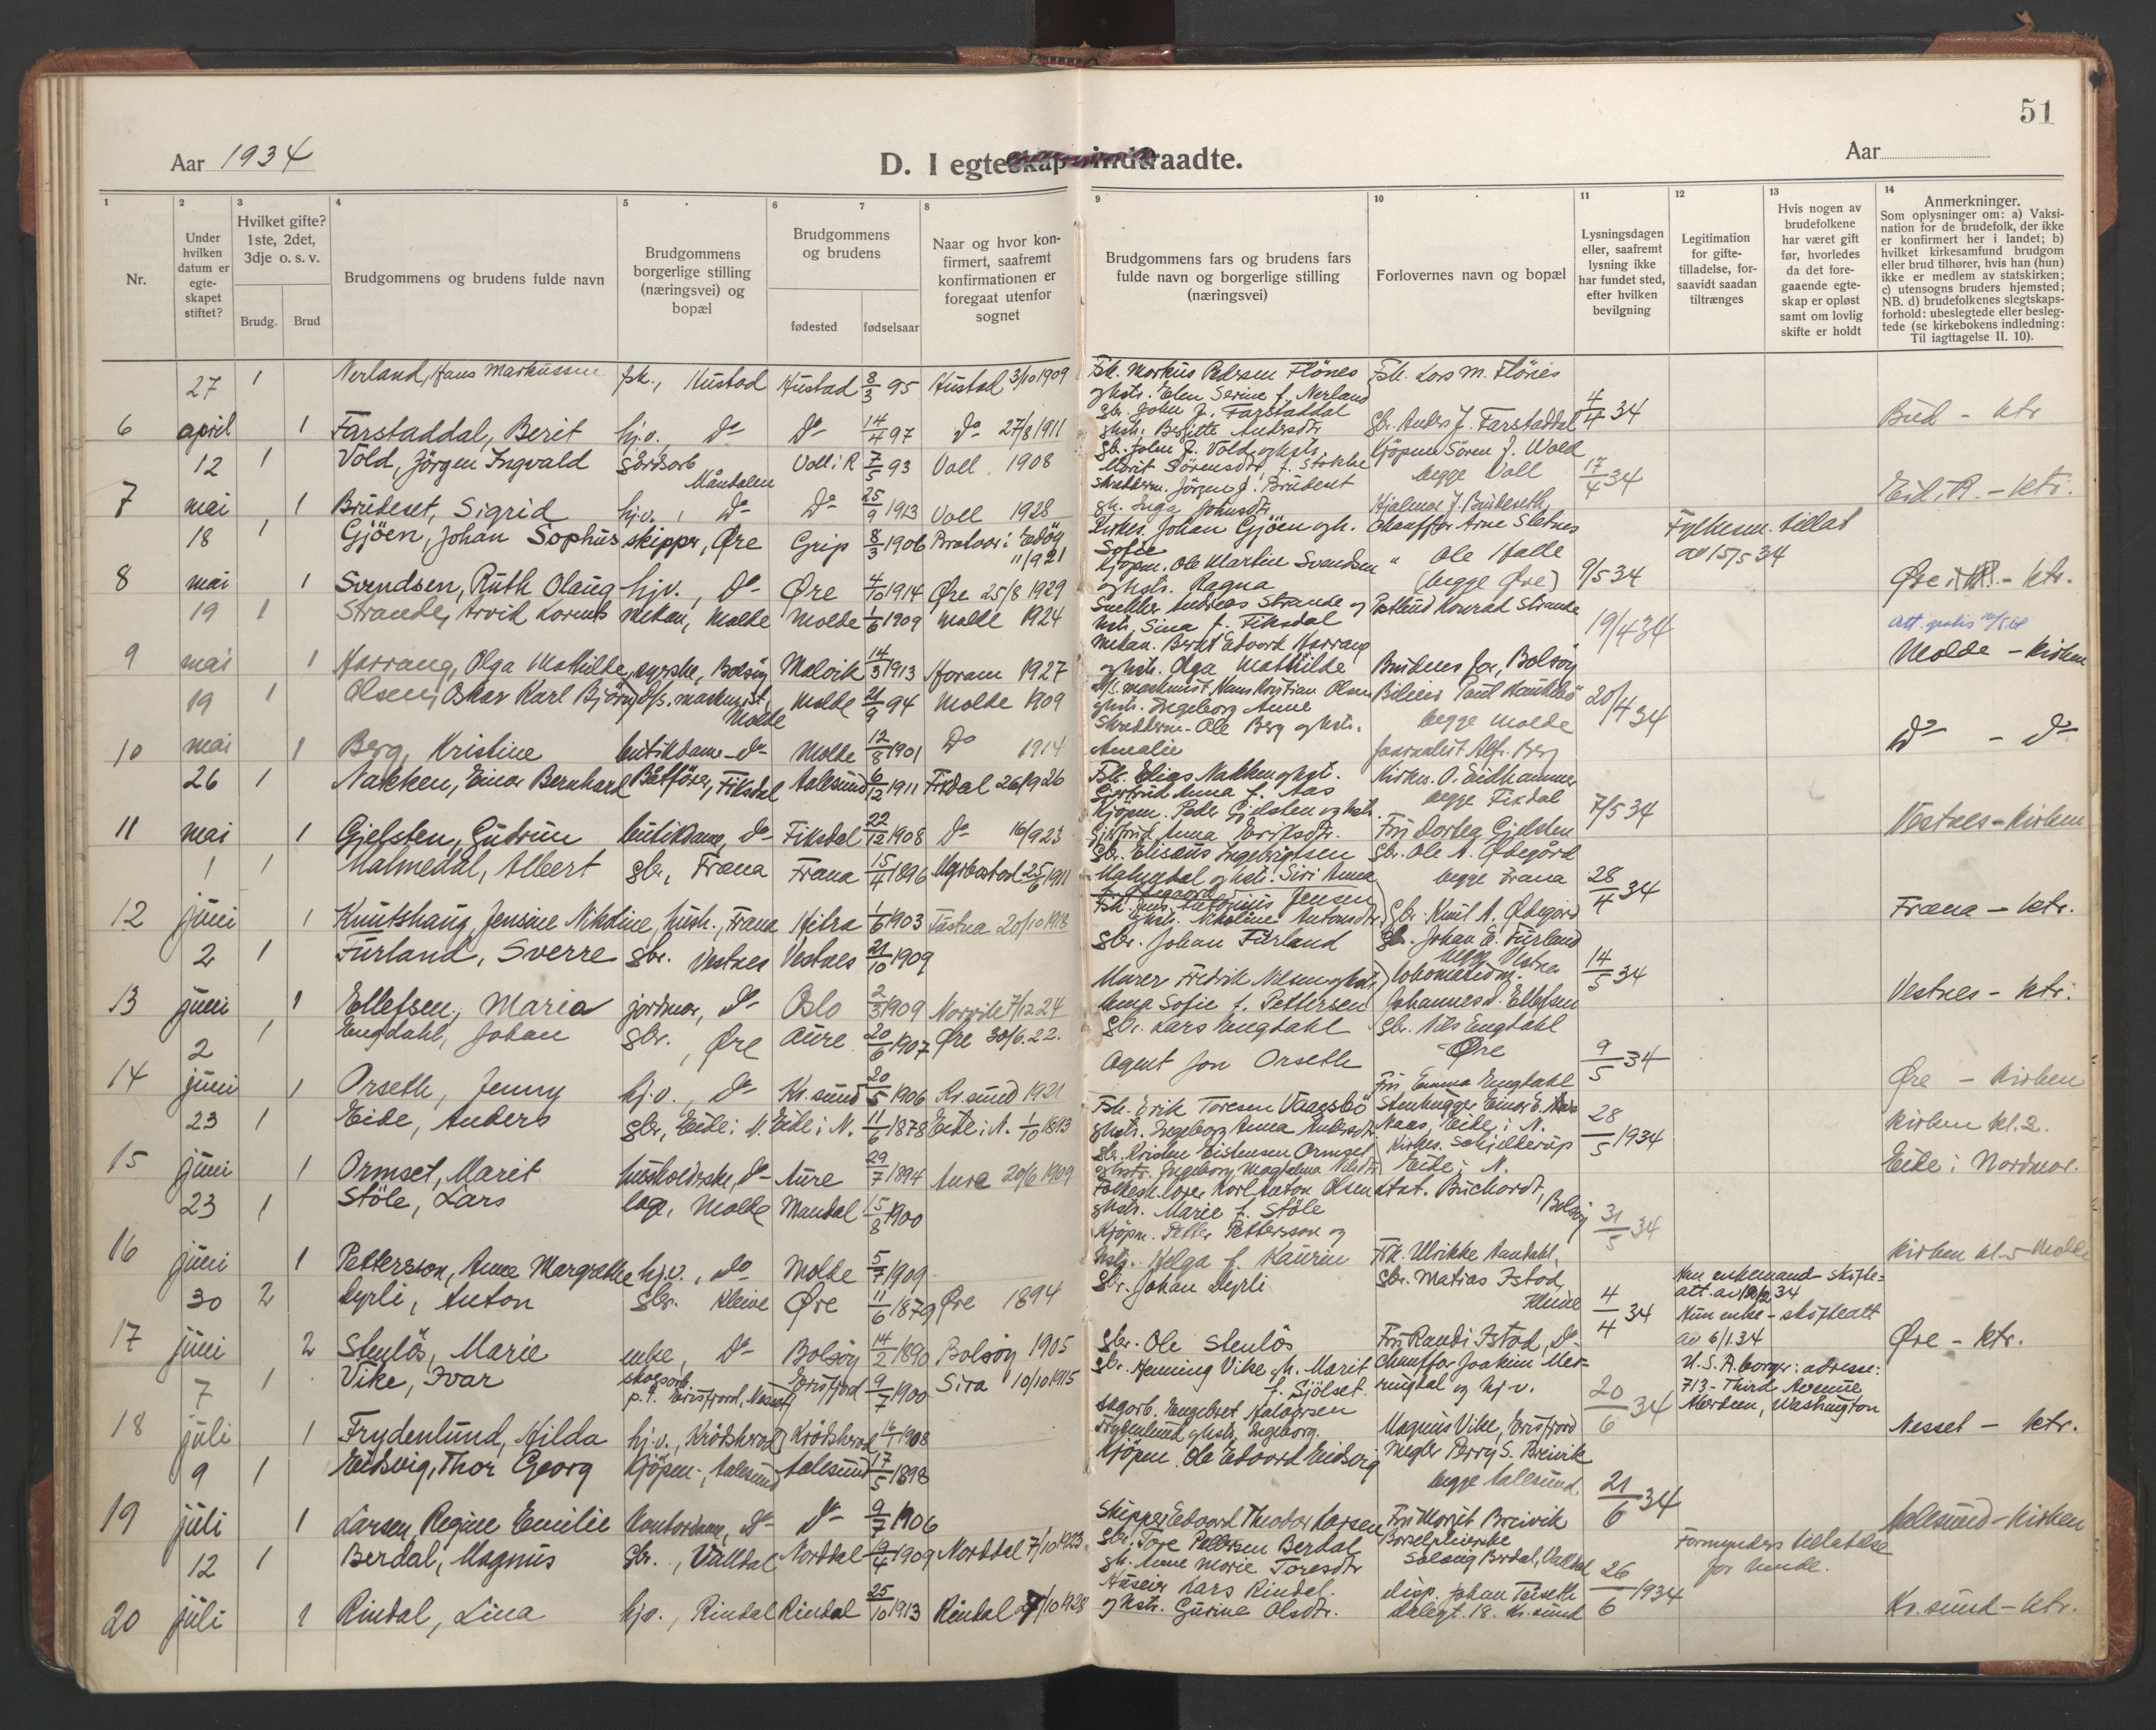 51
Aar 1934
D. I egteskap indtraadte.
Aar
1 2 3 4 5 6 7 8 9 10 11 12 13 14
Nr.
Under hvilken datum er egte-skapet stiftet?
Hvilket gifte? 1ste, 2det, 3dje o. s. v.
Brudg. Brud
Brudgommens og brudens fulde navn
Brudgommens borgerlige stilling (næringsvei) og bopæl
Brudgommens og brudens
fødested fødselsaar
Naar og hvor kon-firmert, saafremt konfirmationen er foregaat utenfor sognet
Brudgommens fars og brudens fars fulde navn og borgerlige stilling (næringsvei)
Forlovernes navn og bopæl
Lysningsdagen eller, saafremt lysning ikke har fundet sted, efter hvilken bevilgning
Legitimation for gifte-tilladelse, for-saavidt saadan tiltrænges
Hvis nogen av brudefolkene har været gift før, hvorledes da det fore-gaaende egte-skap er opløst samt om lovlig skifte er holdt
Anmerkninger.
Som oplysninger om: a) Vaksi-nation for de brudefolk, der ikke er konfirmert her i landet; b) hvilket kirkesamfund brudgom eller brud tilhører, hvis han (hun) ikke er medlem av statskirken; c) utensogns bruders hjemsted; NB. d) brudefolkenes slegtskaps-forhold: ubeslegtede eller besleg-tede (se kirkebokens indledning: Til iagttagelse II. 10).
27 1 Nerland, Hans Markussen fsk., Hustad Hustad 8/3 95 Hustad 3/10 1909 Fsk. Markus Pedersen Flönes Fsk. Lars M. Flönes
og hstr. Elen Serine f. Nerland 4/4 34
6 april 1 Farstaddal, Berit hj.v. do do 14/4 97 do 27/8 1911 Gbr. John J. Farstaddal Gbr. Anders J. Farstaddal Bud - ktr
og hstr. Bergitte Andersdtr
12 1 Vold, Jörgen Ingvald gårdsarb Måndalen Voll i R 7/5 93 Voll 1908 Gbr. John J. Vold og hstr. Kjöpm Sören J. Wold
Marit Sörensdtr. f. Stokke begge Voll 17/4 34
7 mai 1 Brudeset, Sigrid hj.v., do do 25/9 1913 Voll 1928 Skredderm. Jörgen J. Brudeset Hjalmar J. Brudeseth Eid i R. - ktr.
og h. Inga Johnsdtr
18 1 Gjöen, Johan Sophus skipper, Øre Grip 8/3 1906 Bratvær i Edöy 11/9 21 Johan Gjöen og h. Chauffør Arne Sletnes Fylkesm. tillat
Sofie " Ole Halle av 15/5 34
8 mai 1 Svendsen, Ruth Olaug hj.v., do Øre 4/10 1914 Øre 25/8 1929 Kjöpm. Ole Martin Svendsen (begge Øre) 9/5 34 Øre - ktr.
og hstr. Ragna
19 1 Strande, Arvik Lorents mekan, Molde Molde 1/6 1909 Molde 1924 Snekker Andreas Strande og Postbud Konrad Strande
hstr. Sina f. Fiksdal 19/4 34 att. gratis
9 mai 1 Harrang, Olga Mathilde, syerske, Bolsöy Malvik 14/3 1913 Haram 1927 Mekan. Berht Edvard Harrang Brudens far, Bolsöy Molde - kirken
og hstr. Olga Mathilde
19 1 Olsen, Oskar Karl Björn D/s. maskinist, Molde Molde 21/9 94 Molde 1909 maskinist Hans Kristian Olsen Bileier Paul
og hstr. Ingeborg Anne begge Molde 20/4 34
10 mai 1 Berg, Kristine butikdame do Molde 12/8 1901 do 1914 Skredderm. Ole Berg og hstr. Journalist Alf. Berg do - do
Amalie
26 1 Nakken, Einar Bernhard Båtförer, Fiksdal Aalesund 6/12 1911 Fiksdal 26/9 26 Fsk. Elias Nakken og hst. Kirkes. O. Eidhammer
Gjertrud Anna f. Aas begge Fiksdal 7/5 34
11 mai 1 Gjelsten, Gudrun butikdame, do Fiksdal 22/12 1908 do 16/9 23 Kjöpm. Peder Gjelsten og hstr. Fru Dortea Gjelsten Vestnes - kirken
Sigfrid Anna Eriksdtr.
1 1 Malmedal, Albert gbr., Fræna Fræna 15/4 1896 Myrbostad 25/6 1911 Gbr. Elisæus Ingebrigtsen Gbr. Ole A. Ødegård
Malmedal og hstr. Siri Anna begge Fræna 28/4 34
12 juni 1 Knutshaug, Jensine Nikoline, hush., Fræna Hitra 1/6 1903 Tustna 20/10 1918 Fsk. Jens Antonius Jensen Gbr. Knut A. Ødegård Fræna - ktr.
og hstr. Nikoline Antonsdtr
2 1 Furland, Sverre gbr. Vestnes Vestnes 21/10 1909 Gbr. Johan Furland Gbr. Johan E. Furland
begge Vestnes 14/5 34
13 juni 1 Ellefsen, Maria jordmor, do Oslo 2/3 1909 Norvik 7/12 24 Murer Fredrik Nilsen og hst. Lokomotivm. Vestnes - ktr.
Anna Sofie f. Pettersen Johannes d. Ellefsen
2 1 Engdahl, Johan gbr., Øre Aure 20/6 1907 Øre 30/6. 22. Gbr. Lars Engdahl Gbr. Nils Engdahl
Øre 9/5 34
14 juni 1 Orseth, Jenny hj.v., do Kr.sund 20/5 1906 Kr.sund 1921 Agent Jon Orseth Fru Emma Engdahl Øre - kirken
23 1 Eide, Anders gbr, Eide i N. Eide i N. 11/6 1878 Eide i N. 1/10 1893 Fsk. Erik Toresen Vaagsbö Stenhugger Einar E. Naas kirken kl. 2.
og hstr. Ingeborg Anna Andersdtr. Naas, Eide i N. 28/5 1934
15 juni 1 Ormset, Marit husholderske, do Aure 29/7 1894 Aure 20/6 1909 Gbr. Kristen Eistensen Ormset Kirkes. Schjölberg Eide i Nordmør.
og hstr. Ingeborg Magdalena Nilsdtr Eide i N.
23 1 Stöle, Lars lege, Molde Mandal 15/8 1900 Folkesk.lærer Karl Anton Olsen Buchardt, Bolsöy
og hstr. Marie f. Stöle 31/5 34
16 juni 1 Pettersson, Anne Margrethe hj.v., do Molde 5/7 1909 Kjöpm. Petter Pettersson og Frk. Ulrikke Aandahl, kirken kl. 5 Molde
hstr. Helga f. Kaurin
30 2 Dyrli, Anton gbr. Kleive Øre 11/6 1879 Øre 1894 Gbr. Johan Dyrli Gbr. Matias Istad, Kleive 4/4 34 Han enkemand - skifte-
att. av 34
Hun enke - skifteatt
17 juni 2 Stenlös, Marie enke, do Bolsöy 14/2 1890 Bolsöy 1905 Gbr. Ole Stenlös Fru Randi Istad, do av 6/1.34 Øre - ktr.
7 1 Vike, Ivar skogsarb p.t. Eirisfjord, Nesset Eirisfjord 9/7 1900 Sira 10/10 1915 Gbr. Henning Vike h. Marit f. Sjölset. Chauffør Joakim Mer-
ringdal og hj.v. 20/6 34 U.S.A. borger: adresse:
713 - Third Avenue
Aberdeen, Washington
18 juli 1 Frydenlund, Hilda hj.v., Krödsherad Krödsherad 16/1 1908 Sagarb. Engebret Halvorsen Magnus Vike, Eirisfjord Nesset - ktr.
Frydenlund og hstr. Ingeborg.
9 1 Eidsvig, Thor Georg Kjöpm., Aalesund Aalesund 17/5 1898 Kjöpm. Ole Edvard Eidsvig Megler Perry S. Breivik
begge Aalesund. 21/6 34
19 juli 1 Larsen, Regine Emilie Kontordame, do do 9/7 1906 Skipper Edvard Theodor Larsen Fru Margit Breivik Aalesund - kirken
12 1 Berdal, Magnus gbr., Valldal Norddal 19/4 1909 Norddal 7/10 1923 Gbr. Tore Pettersen Berdal Solveig Berdal, Valldal Formynders tillatelse
gh. Anne Marie Toresdtr 26/6 1934 for brude.
20 juli 1 Rindal, Lina hj.v., Rindal Rindal 25/10 1913 Rindal 7/10 1928 Huseier Lars Rindal. disp. Johan Teiseth Kr.sund - ktr.
og hstr. Gurine Olsdtr. Dalegt. 18. Kr.sund